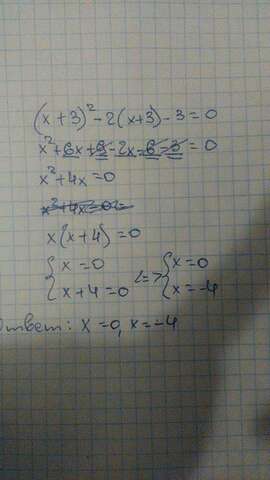 (x+3)²-2(x+3)-3=0
x²+6x+9-2x-6-3=0
x²+4x=0
x²+4x=0
x(x+4)=0
{x=0 <=> {x=0
{x+4=0 {x=-4
Ответ: x=0, x=-4